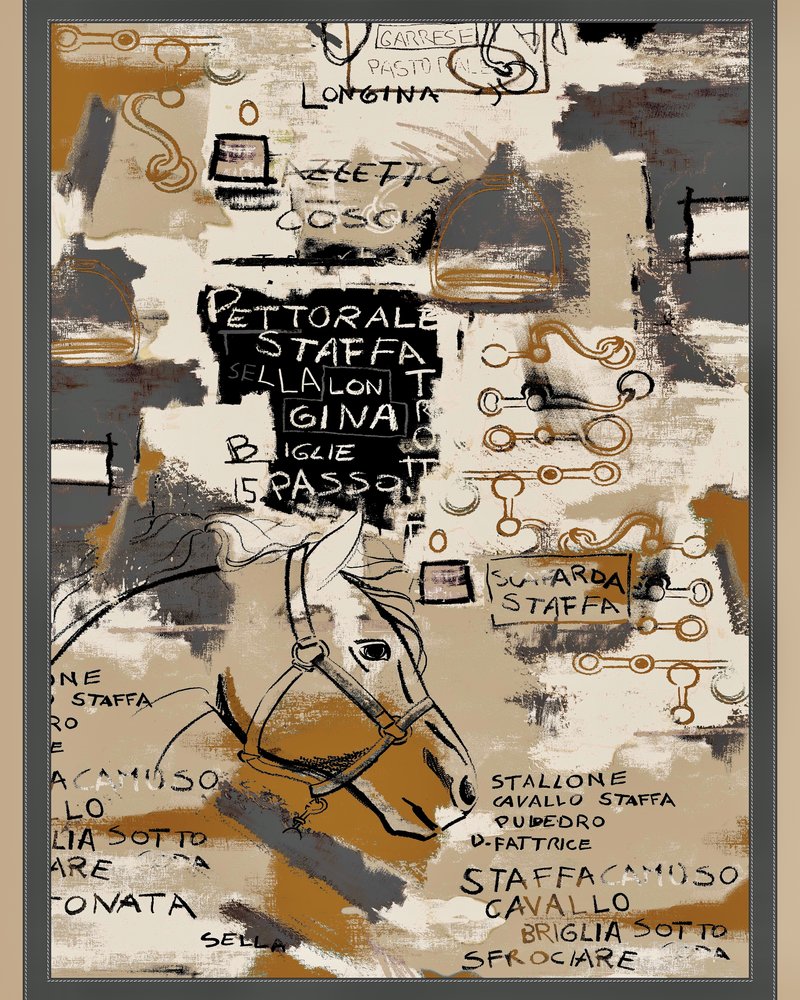 GARRESE
PASTORALE
LONGINA
AZZETTO
COSCIA
PETTORALE
STAFFA
SELLA LON
GINA
TROTT
B IGLIE
15 PASSO
STAFFA
ONE
STAFFA
RO
E
ACAMUSO
LLO
LIA SOTTO
ARE CODA
TONATA
SELLA
STALLONE
CAVALLO STAFFA
PULEDRO
D-FATTRICE
STAFFACAMUSO
CAVALLO
BRIGLIA SOTTO
SFROCIARE CODA